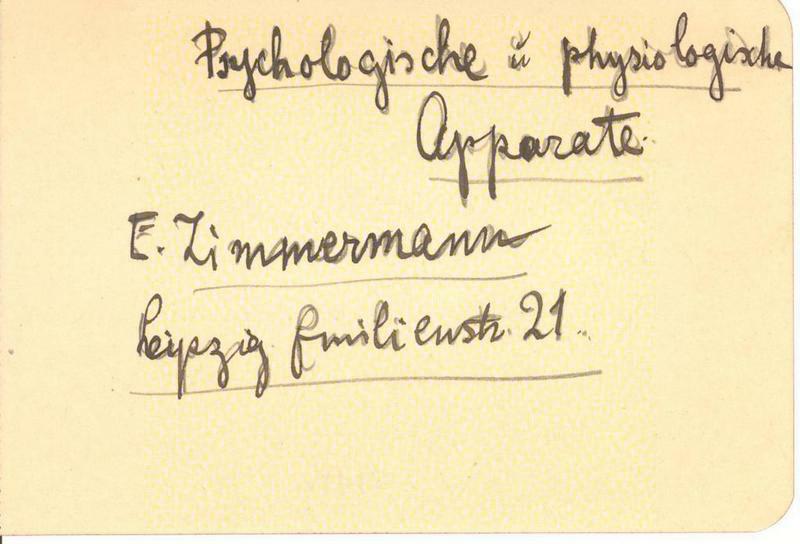 Psychologische ŭ physiologische
Apparate.
E. Zimmermann
Leipzig Emilienstr. 21.